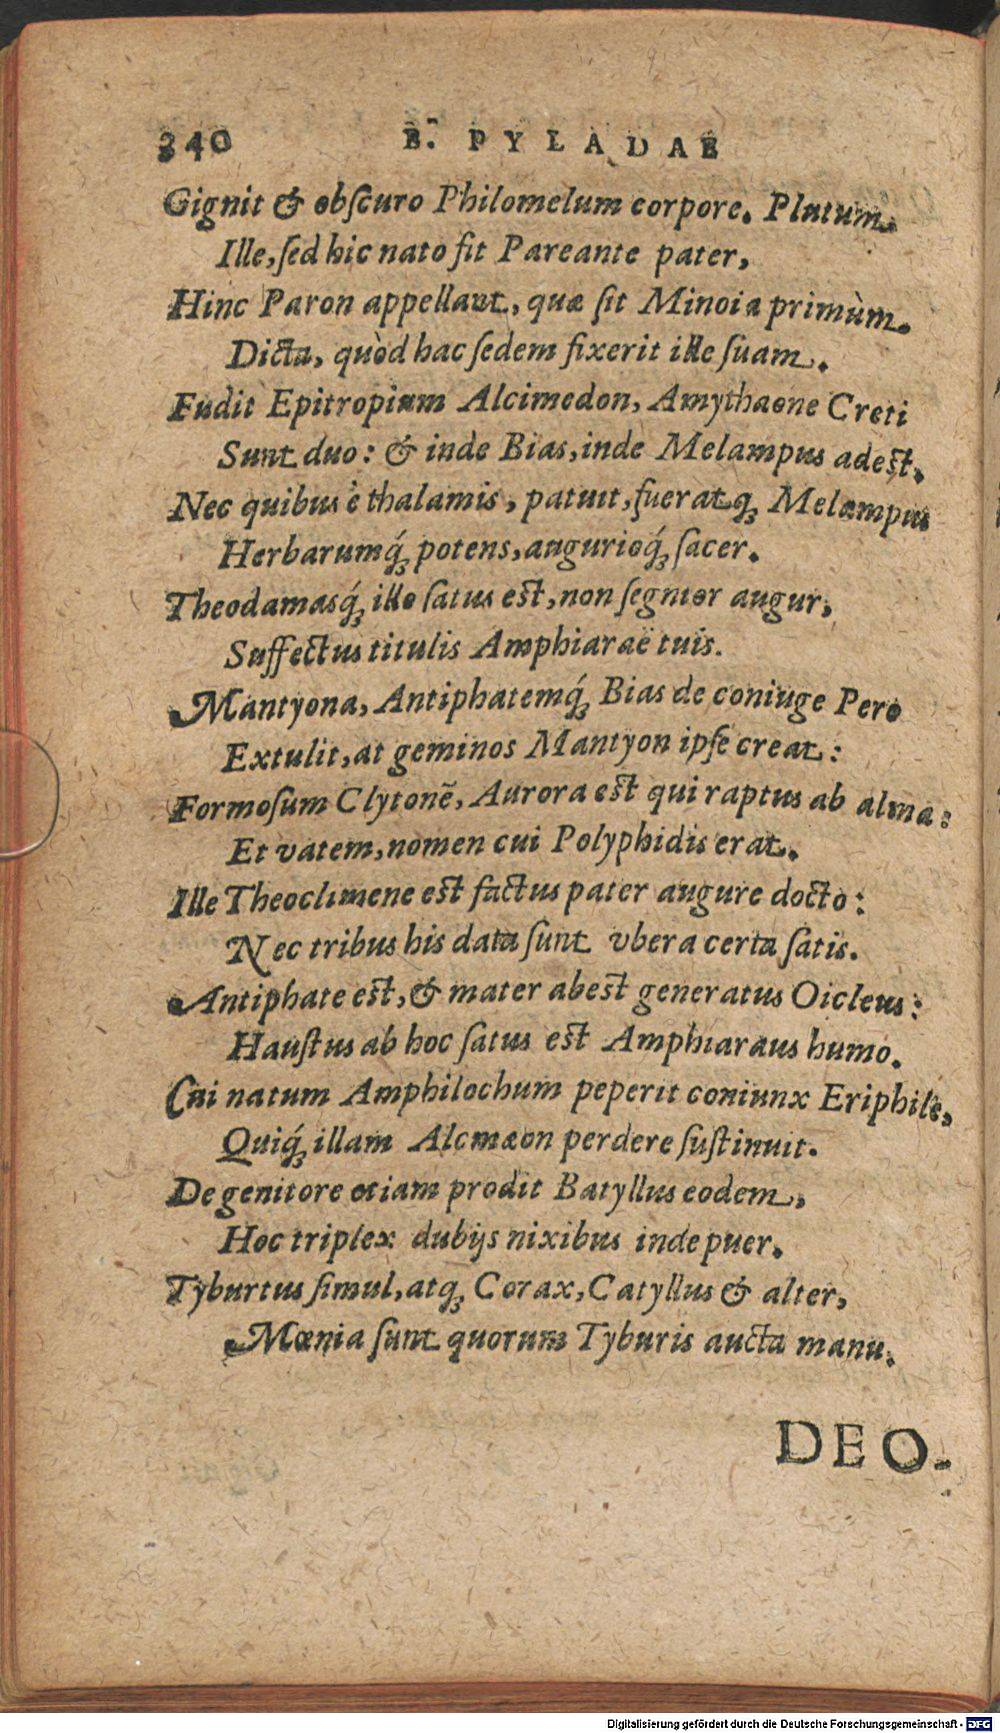 340 B. PYLADAE
Gignit & obſcuro Philomelum corpore. Plutum
Ille, ſed hic nato fit Pareante pater,
Hinc Paron appellant, quæ ſit Minoia primùm.
Dicta, quòd hac ſedem fixerit ille ſuam.
Fudit Epitropium Alcimedon, Amythaone Creti
Sunt duo: & inde Bias, inde Melampus adeſt.
Nec quibus è thalamis, patuit, fueratq́; Melampus
Herbarumq́; potens, augurioq́; ſacer.
Theodamasq́; illo ſatus eſt, non ſegnior augur,
Suffectus titulis Amphiaraë tuis.
Mantyona, Antiphatemq́; Bias de coniuge Pero
Extulit, at geminos Mantyon ipſe creat:
Formoſum Clytonẽ, Aurora eſt qui raptus ab alma:
Et vatem, nomen cui Polyphidis erat.
Ille Theoclimene eſt factus pater augure docto:
Nec tribus his data ſunt vbera certa ſatis.
Antiphate eſt, & mater abeſt generatus Oicleus:
Hauſtus ab hoc ſatus eſt Amphiaraus humo.
Cui natum Amphilochum peperit coniunx Eriphile,
Quiq́; illam Alcmæon perdere ſuſtinuit.
De genitore etiam prodit Batyllus eodem,
Hoc triplex dubijs nixibus inde puer.
Tyburtus ſimul, atq; Corax, Catyllus & alter,
Mœnia ſunt quorum Tyburis aucta manu.
DEO-
Digitalisierung gefördert durch die Deutsche Forschungsgemeinschaft - DFG